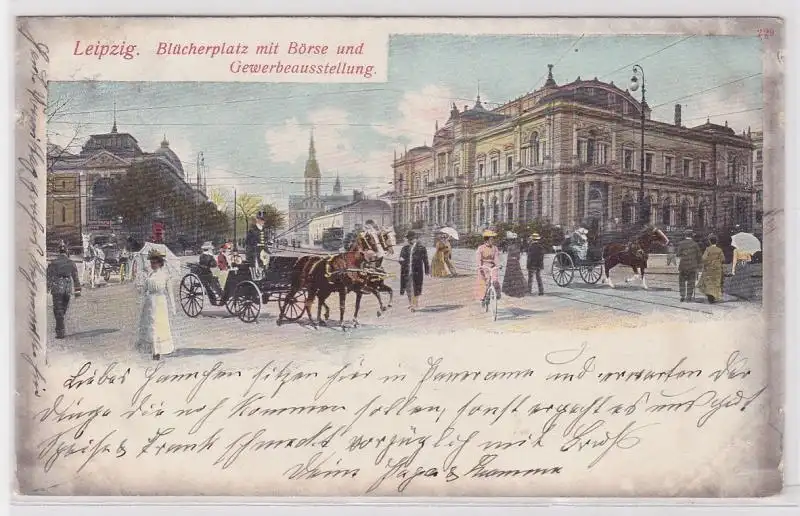 Leipzig. Blücherplatz mit Börse und
Gewerbeausstellung.
229
Liebes Hannchen sitzen hier in Panorama und erwarten der
Dinge die noch kommen sollen, sonst ergeht es uns gut
Speise & Trank schmeckt vorzüglich mit Gruß
Deine Papa & Mamma